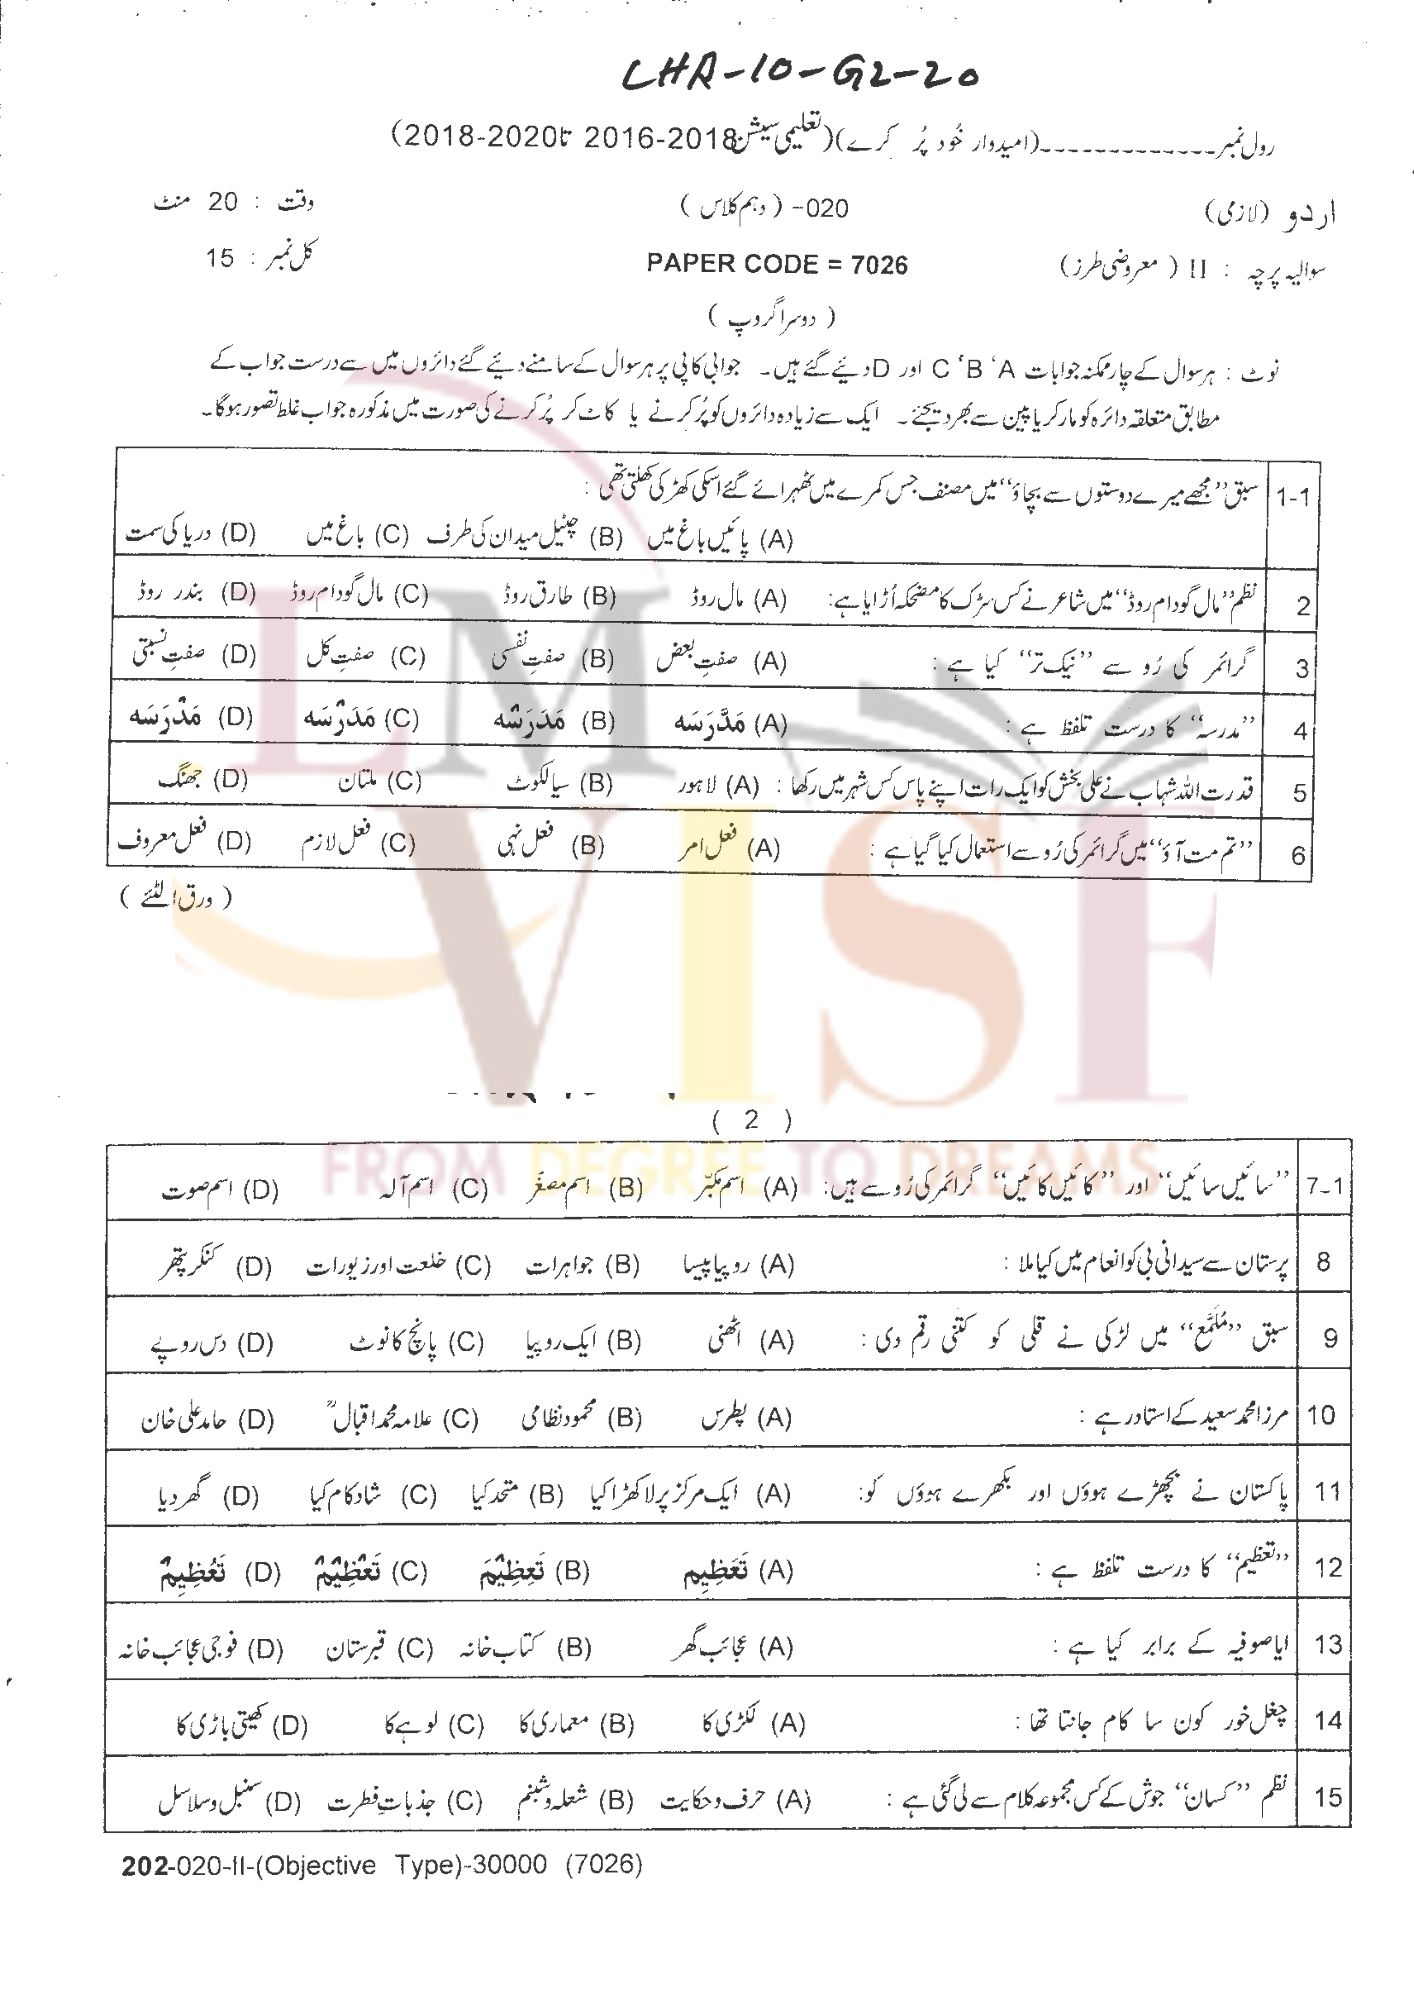 LHR-10-G2-20
رول نمبر-------------(امیدوار خُود پُر کرے)(تعلیمی سیشن2018-2016 تا2020-2018)
اردو (لازمی) 020- (دہم کلاس) وقت : 20 منٹ
سوالیہ پرچہ : II (معروضی طرز) PAPER CODE = 7026 کل نمبر : 15
(دوسرا گروپ)
نوٹ : ہر سوال کے چار ممکنہ جوابات A ‘B ‘C اور D دیئے گئے ہیں۔ جوابی کاپی پر ہر سوال کے سامنے دیئے گئے دائروں میں سے درست جواب کے
مطابق متعلقہ دائرہ کو مارکر یا پین سے بھر دیجئے۔ ایک سے زیادہ دائروں کو پُر کرنے یا کاٹ کر پُر کرنے کی صورت میں مذکورہ جواب غلط تصور ہوگا۔
1-1 سبق ”مجھے میرے دوستوں سے بچاؤ“ میں مصنف جس کمرے میں ٹھہرائے گئے اسکی کھڑکی کھلتی تھی :
(A) پائیں باغ میں (B) چٹیل میدان کی طرف (C) باغ میں (D) دریا کی سمت
2 نظم ”مال گودام روڈ“ میں شاعر نے کس سڑک کا مضحکہ اُڑایا ہے: (A) مال روڈ (B) طارق روڈ (C) مال گودام روڈ (D) بندر روڈ
3 گرائمر کی رُو سے ”نیک تر“ کیا ہے : (A) صفتِ بعض (B) صفتِ نفسی (C) صفتِ کل (D) صفتِ نسبتی
4 ”مدرسہ“ کا درست تلفظ ہے : (A) مَدَّرَسَہ (B) مَدَرَسْہ (C) مَدَرْسَہ (D) مَدْرَسَہ
5 قدرت اللہ شہاب نے علی بخش کو ایک رات اپنے پاس کس شہر میں رکھا : (A) لاہور (B) سیالکوٹ (C) ملتان (D) جھنگ
6 ”تم مت آؤ“ میں گرائمر کی رُو سے استعمال کیا گیا ہے : (A) فعل امر (B) فعل نہی (C) فعل لازم (D) فعل معروف
(ورق الٹئے)
( 2 )
7-1 ”سائیں سائیں“ اور ”کائیں کائیں“ گرائمر کی رُو سے ہیں: (A) اسم مکبّر (B) اسم مصغّر (C) اسم آلہ (D) اسم صوت
8 پرستان سے سیدانی بی کو انعام میں کیا ملا : (A) روپیا پیسا (B) جواہرات (C) خلعت اور زیورات (D) کنکر پتھر
9 سبق ”مُلَمَّع“ میں لڑکی نے قلی کو کتنی رقم دی : (A) اٹھنی (B) ایک روپیا (C) پانچ کا نوٹ (D) دس روپے
10 مرزا محمد سعید کے استاد رہے : (A) پطرس (B) محمود نظامی (C) علامہ محمد اقبالؒ (D) حامد علی خان
11 پاکستان نے بچھڑے ہوؤں اور بکھرے ہوؤں کو: (A) ایک مرکز پر لا کھڑا کیا (B) متحد کیا (C) شاد کام کیا (D) گھر دیا
12 ”تعظیم“ کا درست تلفظ ہے : (A) تَعَظِیم (B) تَعِظِیْمَ (C) تَعْظِیْمْ (D) تَعُظِیِمْ
13 ایا صوفیہ کے برابر کیا ہے : (A) عجائب گھر (B) کتاب خانہ (C) قبرستان (D) فوجی عجائب خانہ
14 چغل خور کون سا کام جانتا تھا : (A) لکڑی کا (B) معماری کا (C) لوہے کا (D) کھیتی باڑی کا
15 نظم ”کسان“ جوش کے کس مجموعہ کلام سے لی گئی ہے : (A) حرف و حکایت (B) شعلہ و شبنم (C) جذباتِ فطرت (D) سنبل و سلاسل
202-020-II-(Objective Type)-30000 (7026)
LM
VISF
FROM DEGREE TO DREAMS